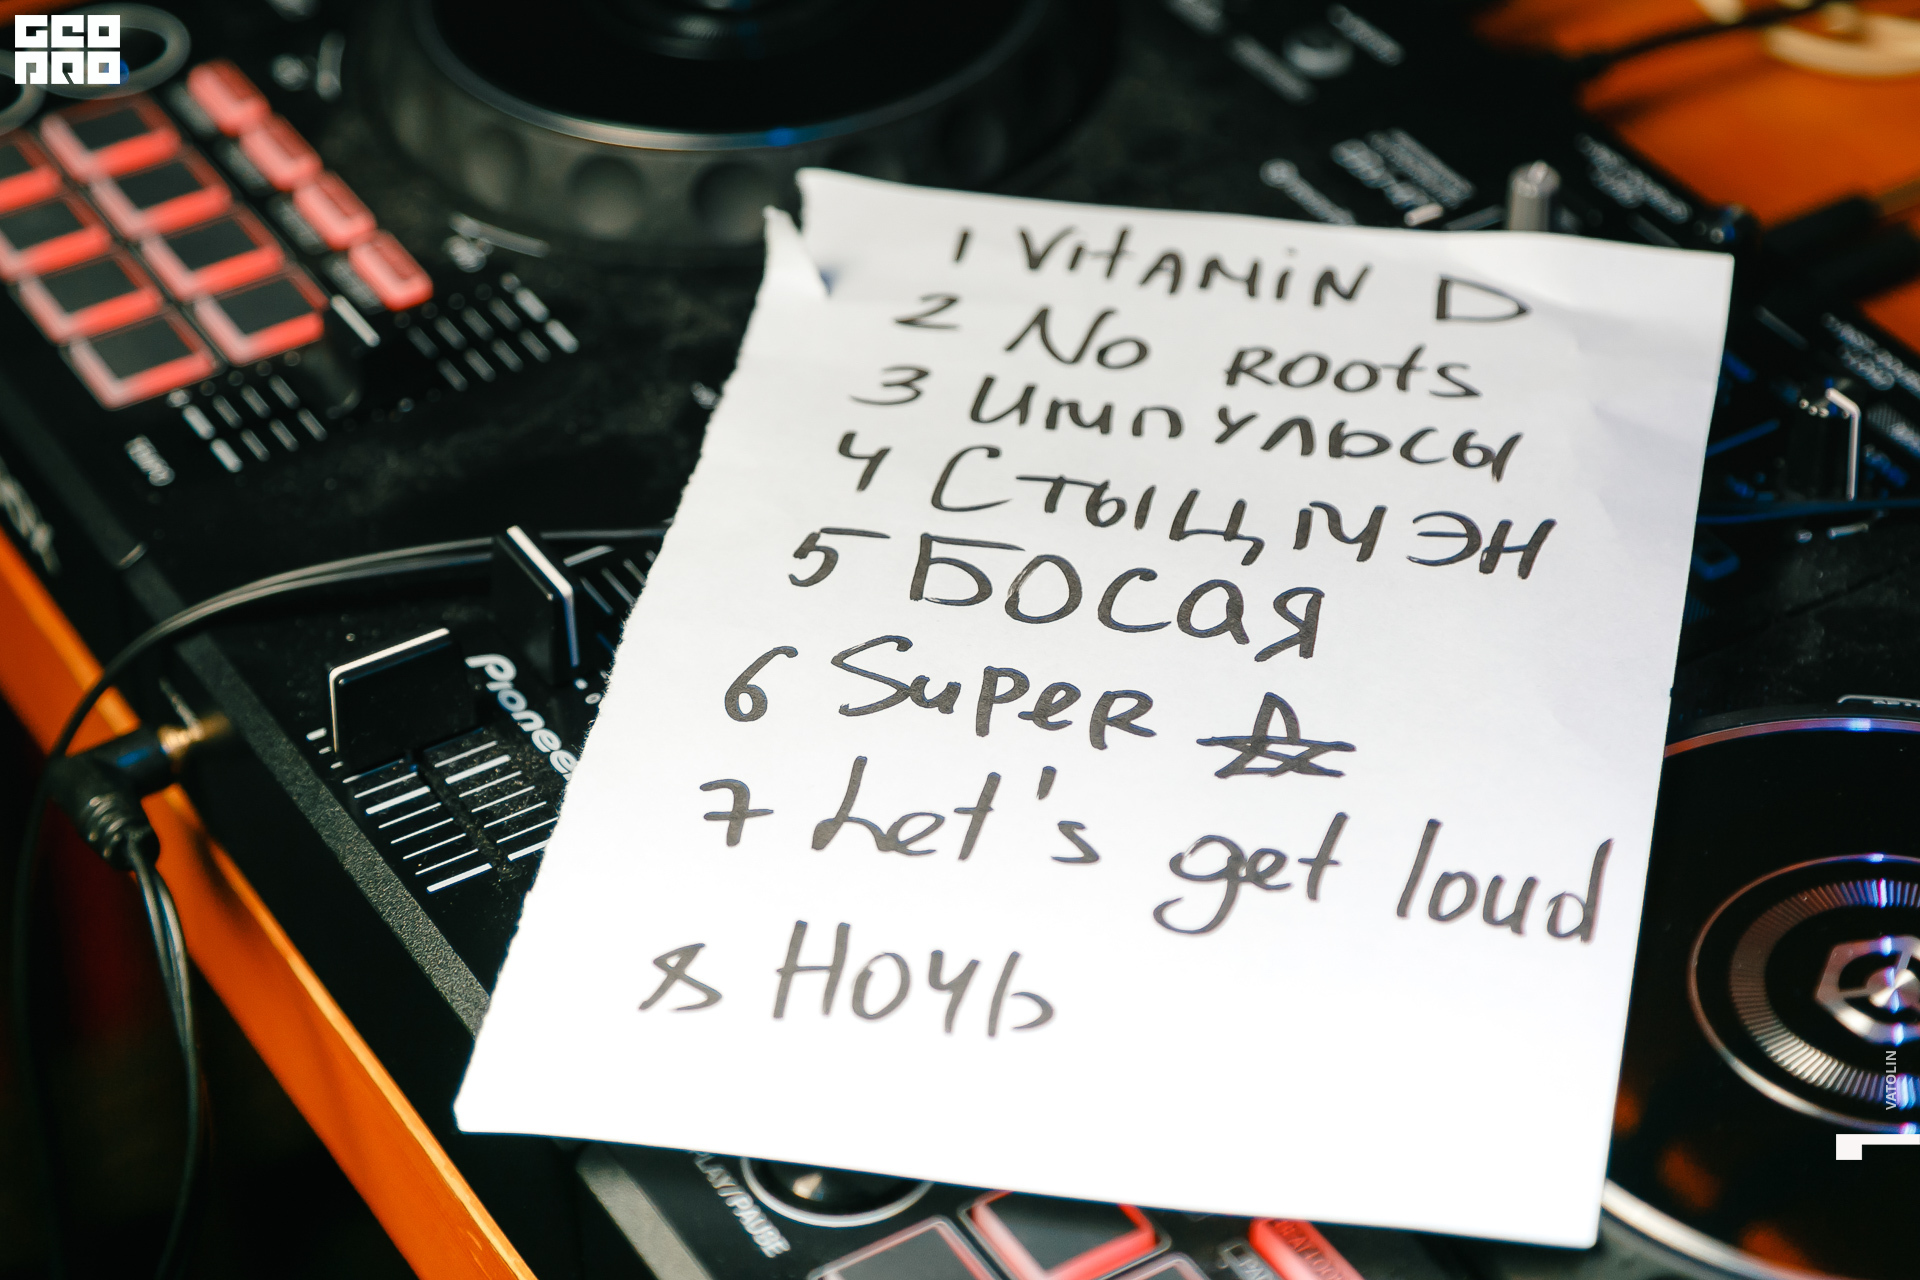 GEO
PRO
1 VitAMiN D
2 No Roots
3 Импульсы
4 Стыцмэн
5 Босая
6 SupeR ☆
7 Let's get loud
8 Ночь
Pioneer
PLAY/PAUSE
VATOLIN